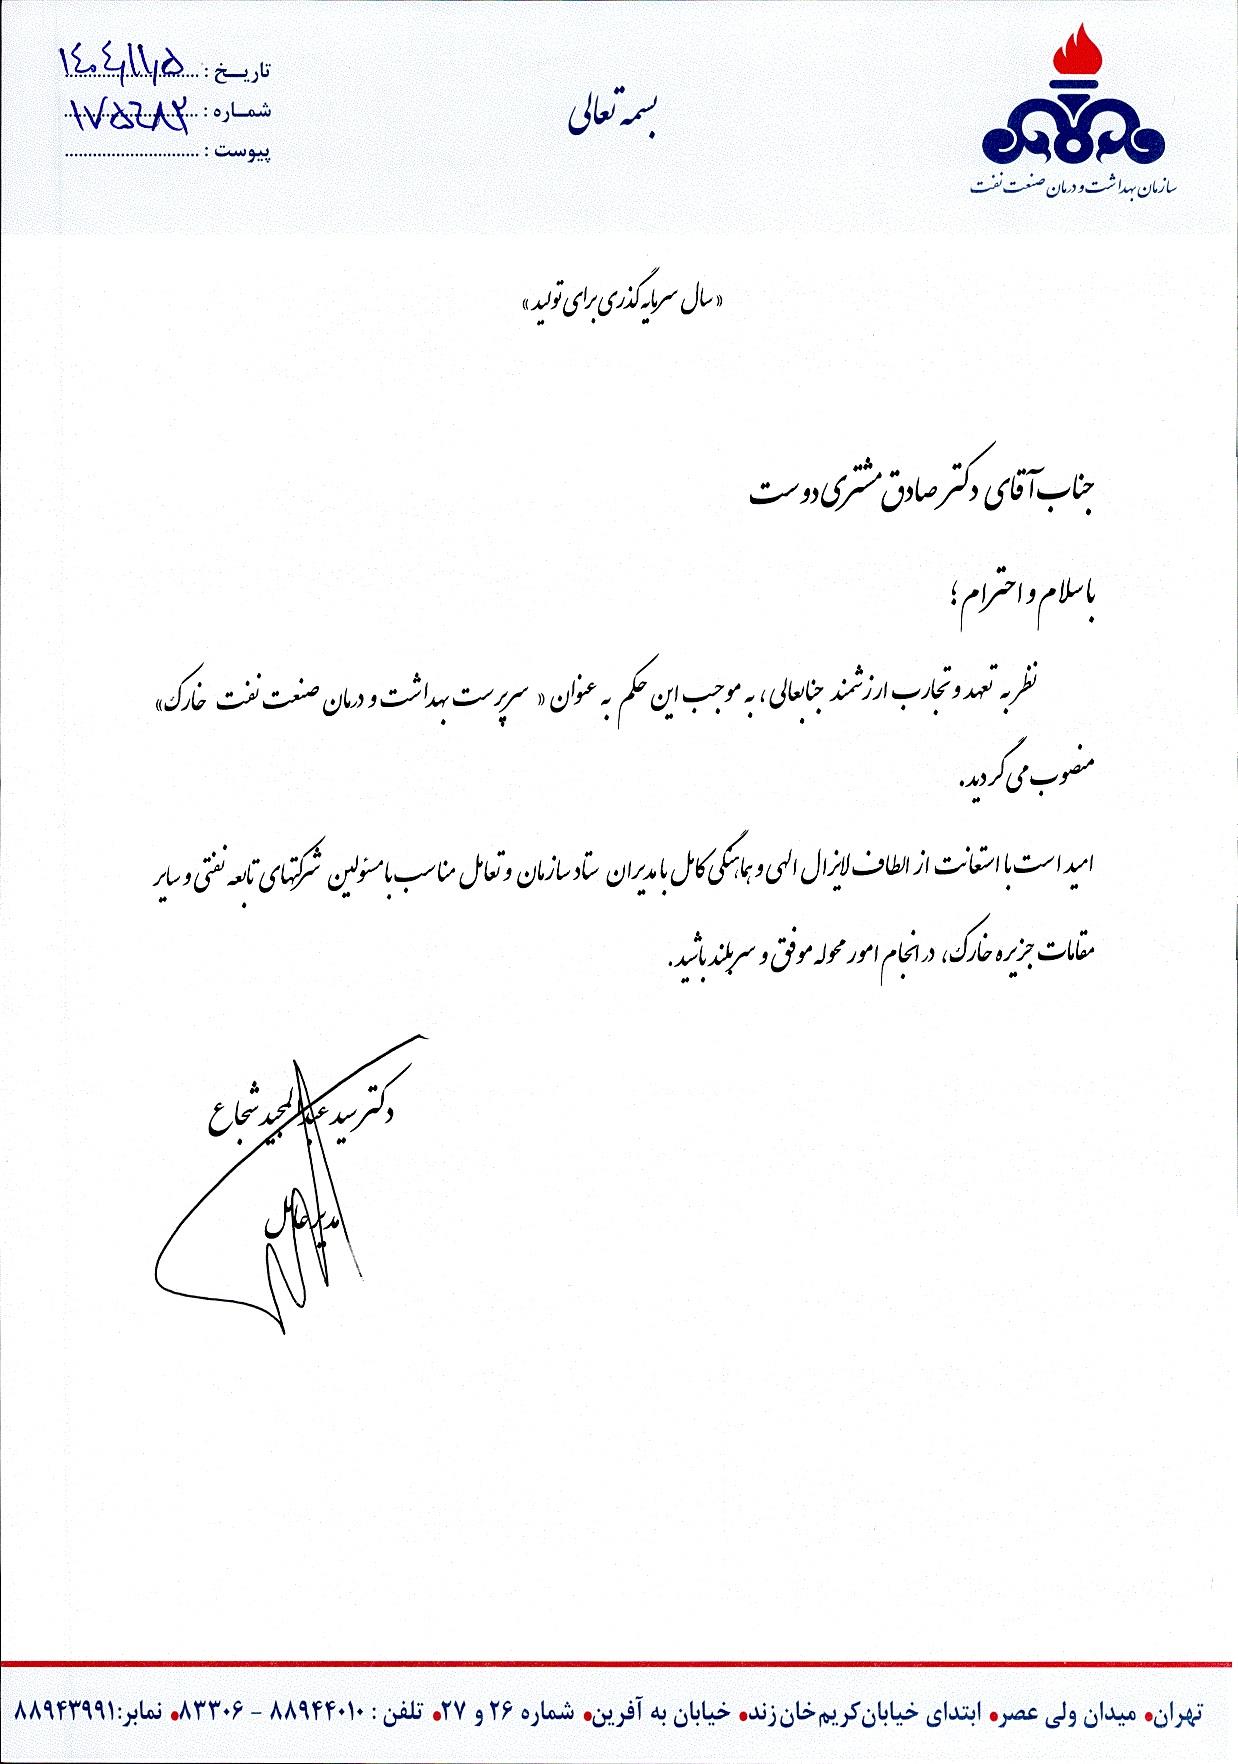 سازمان بهداشت و درمان صنعت نفت
بسمه تعالی
تاریخ : ۱۴۰۴/۱۱/۵
شماره : ۱۷۵۴۸۲
پیوست :
«سال سرمایه گذاری برای تولید»
جناب آقای دکتر صادق مشتری دوست
با سلام و احترام ؛
نظر به تعهد و تجارب ارزشمند جنابعالی ، به موجب این حکم به عنوان « سرپرست بهداشت و درمان صنعت نفت خارک»
منصوب می گردید.
امید است با استعانت از الطاف لایزال الهی و هماهنگی کامل با مدیران ستاد سازمان و تعامل مناسب با مسئولین شرکتهای تابعه نفتی و سایر
مقامات جزیره خارک، در انجام امور محوله موفق و سربلند باشید.
دکتر سید عبدالمجید شجاع
مدیر عامل
تهران• میدان ولی عصر• ابتدای خیابان کریم خان زند• خیابان به آفرین• شماره ۲۶ و ۲۷• تلفن : ۸۸۹۴۴۰۱۰ - ۸۳۳۰۶• نمابر:۸۸۹۴۳۹۹۱